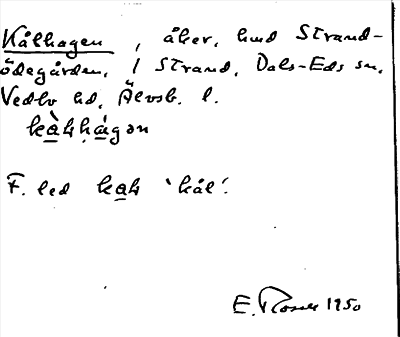 Kålhagen, åker, hmd Strand-
ödegården, i Strand, Dals-Eds sn,
Vedbo hd, Älvsb. l.
kàɫhágən
F. led kaɫ 'kål'.
E. Rosell 1950